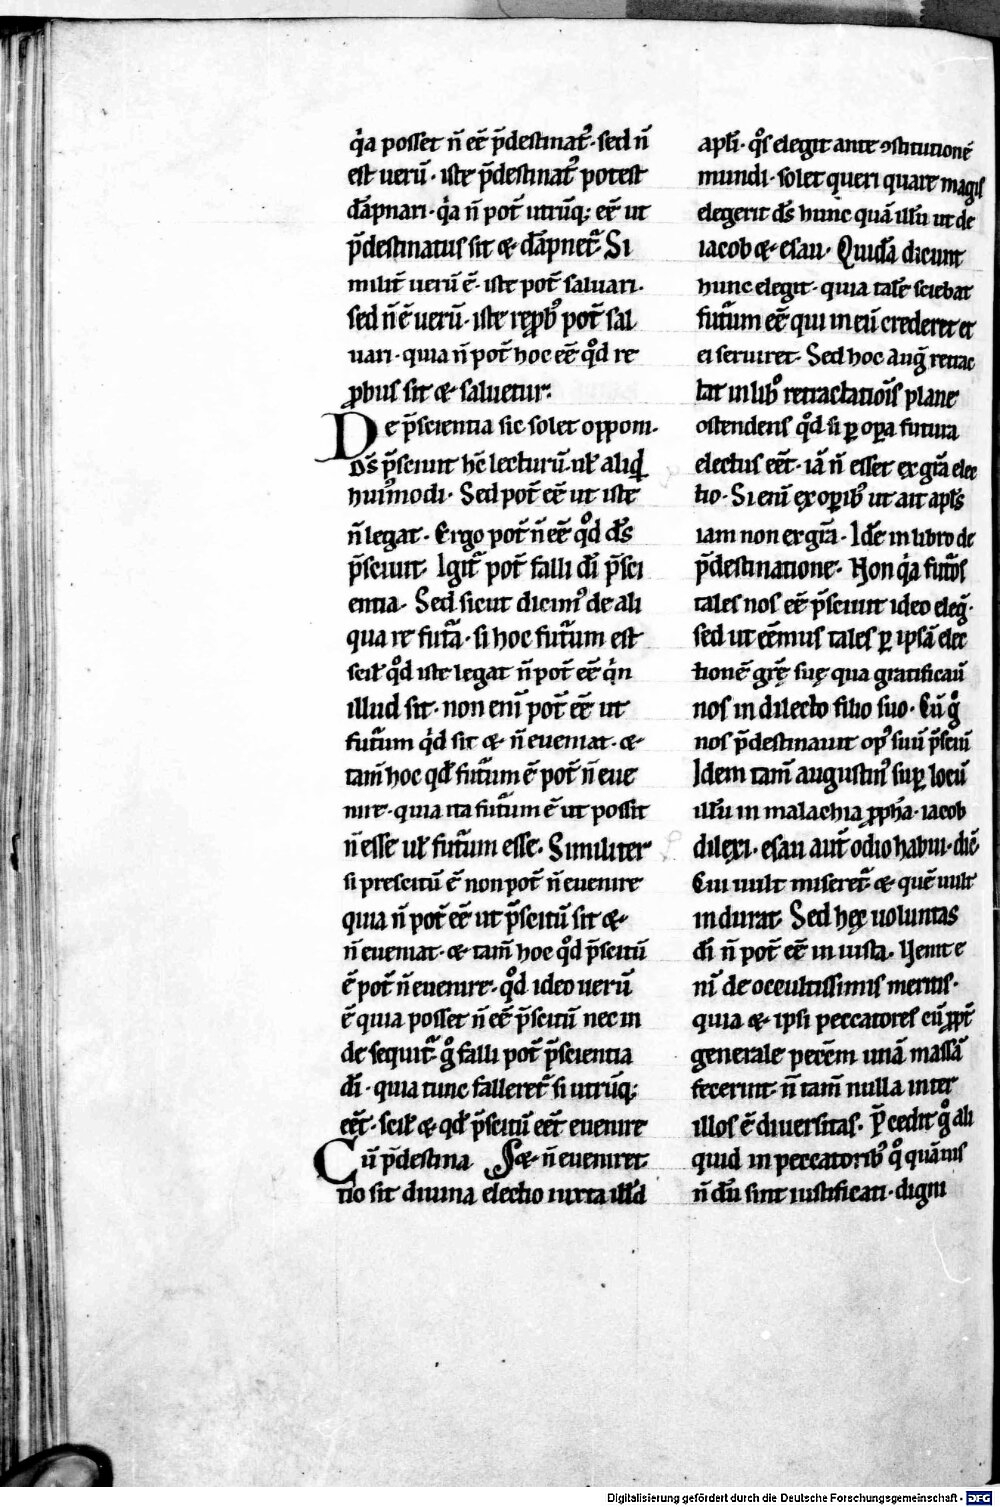 q̇a posset n̄ eē p̄destinat᷒· sed n̄
est uerū· iste p̄destinat᷒ potest
dāpnari· q̇a n̄ pot̄ utrūq; eē ut
p̄destinatus sit & dāpnet᷒. Si
milit̄ uerū ē· iste pot̄ saluari·
sed n̄ ē uerū· iste rep̱b᷒ pot̄ sal
uari· quia n̄ pot̄ hoc eē qͦd re
ꝓbus sit & saluetur.
De p̄scientia sic solet opponi·
Ds̄ p̄sciuit hc̄ lecturū· uł aliqͥd
hui᷒modi· Sed pot̄ eē ut iste
n̄ legat· Ergo pot̄ n̄ eē qͦd ds̄
p̄sciuit· Igit᷒ pot̄ falli dī p̄sci
entia· Sed sicut dicim᷒ de ali
qua re fut᷒a· si hoc fut᷒um est
scił qͦd iste legat n̄ pot̄ eē qͥn
illud sit· non enī pot̄ eē ut
fut᷒um qͥd sit & n̄ eueniat· &
tam̄ hoc qd̄ fut᷒um ē pot̄ n̄ eue
nire· quia ita fut᷒um ē ut possit
n̄ esse uł fut᷒um esse· Similiter
si prescitū ē non pot̄ n̄ euenire
quia n̄ pot̄ eē ut p̄scitū sit &
n̄ eueniat· & tam̄ hoc qͦd p̄scitū
ē pot̄ n̄ euenire· qͦd ideo uerū
ē quia posset n̄ eē p̄scitū nec in
de sequit᷒ gͦ falli pot̄ p̄scientia
dī· quia tunc falleret᷒ si utrūq;
eēt· scił & qd̄ p̄scitū eēt euenire
& n̄ eueniret.
Cū p̄destina
tio sit diuina electio iuxta illd̄
apłi· qͦs elegit ante ꝯstitutionē
mundi· solet queri quare magis
elegerit ds̄ hunc quā illū ut de
iacob & esau· Quidā dicunt
hunc elegit· quia talē sciebat
fut᷒um eē qui in eū crederet et
ei seruiret· Sed hoc auḡ retrac
tat in lib᷒ retractatiōis plane
ostendens qͦd si ꝑ oꝑa futura
electus eēt· iā n̄ esset ex gr̄a elec
tio· Si enī ex oꝑib᷒ ut ait apłs
iam non ex gr̄a· Idē in libro de
p̄destinatione· Non q̇a fut᷒os
tales nos eē p̄sciuit ideo eleḡ·
sed ut eēmus tales ꝑ ipsā elec
tionē gr̄ę suę qua gratificaū
nos in dilecto filio suo· Cū gͦ
nos p̄destinauit op᷒ suū p̄sciū
Idem tam̄ augustin᷒ suꝑ locū
illū in malachia ꝓph̄a· iacob
dilexi· esau aut̄ odio habui· dic̄·
Cui uult miseret᷒ & quē uult
indurat· Sed hęc uoluntas
dī n̄ pot̄ eē iniusta· Venit e
nī de occultissimis meritis·
quia & ipsi peccatores cū ꝓpt̄
generale pecc̄m unā massā
fecerint· n̄ tam̄ nulla inter
illos ē diuersitas· p̄cedit gͦ ali
quid in peccatorib᷒ qͦ quāuis
n̄ dū sint iustificati· digni